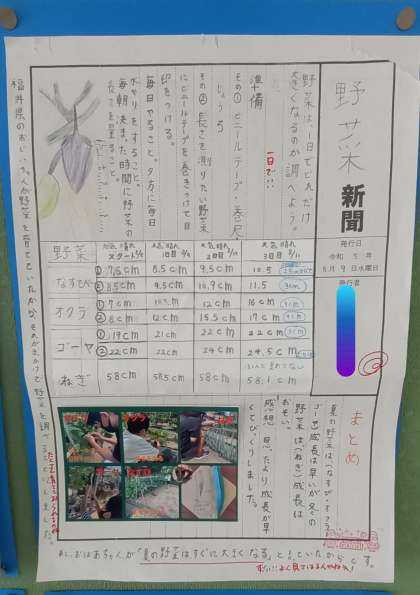 野菜
新聞
発行日
令和5年
8月9日水曜日
発行者
野菜は一日でどれだけ
大きくなるのか調べよう。
一日で!!
準備
その① ビニールテープ・巻尺・
じょうろ
その② 長さを測りたい野菜
にビニールテープを巻きつけて目
印をつける。
毎日やること。夕方に毎日
水やりをすること。
毎朝、決まった時間に野菜の
長さを
福井県のおじいちゃんが野菜を育てていたから
野菜
天気 晴れ
スタート
天気 晴れ
1日目
天気 晴れ
2日目
天気 晴れ
3日目 8/11
なすび
① 7,5cm 8.5cm 9.5cm 10.5
② 8.5cm 9.5cm 10.9cm 11.5
オクラ
① 12cm 16cm
② 12cm 15.5cm 17cm
ゴーヤ
① 19cm 21cm 22cm 22cm
② 22cm 24cm 24.5cm
ねぎ
58cm 58.5cm 58cm 58.1cm
まとめ
夏の野菜は(なすび・オクラ・
ゴーヤ)成長は早いが冬の
野菜は(ねぎ)成長は
おそい。
感想 思ったより成長が早
くてびっくりしました。
おばあちゃんが「夏の野菜はすぐに大きくなる」と言っていたからです。